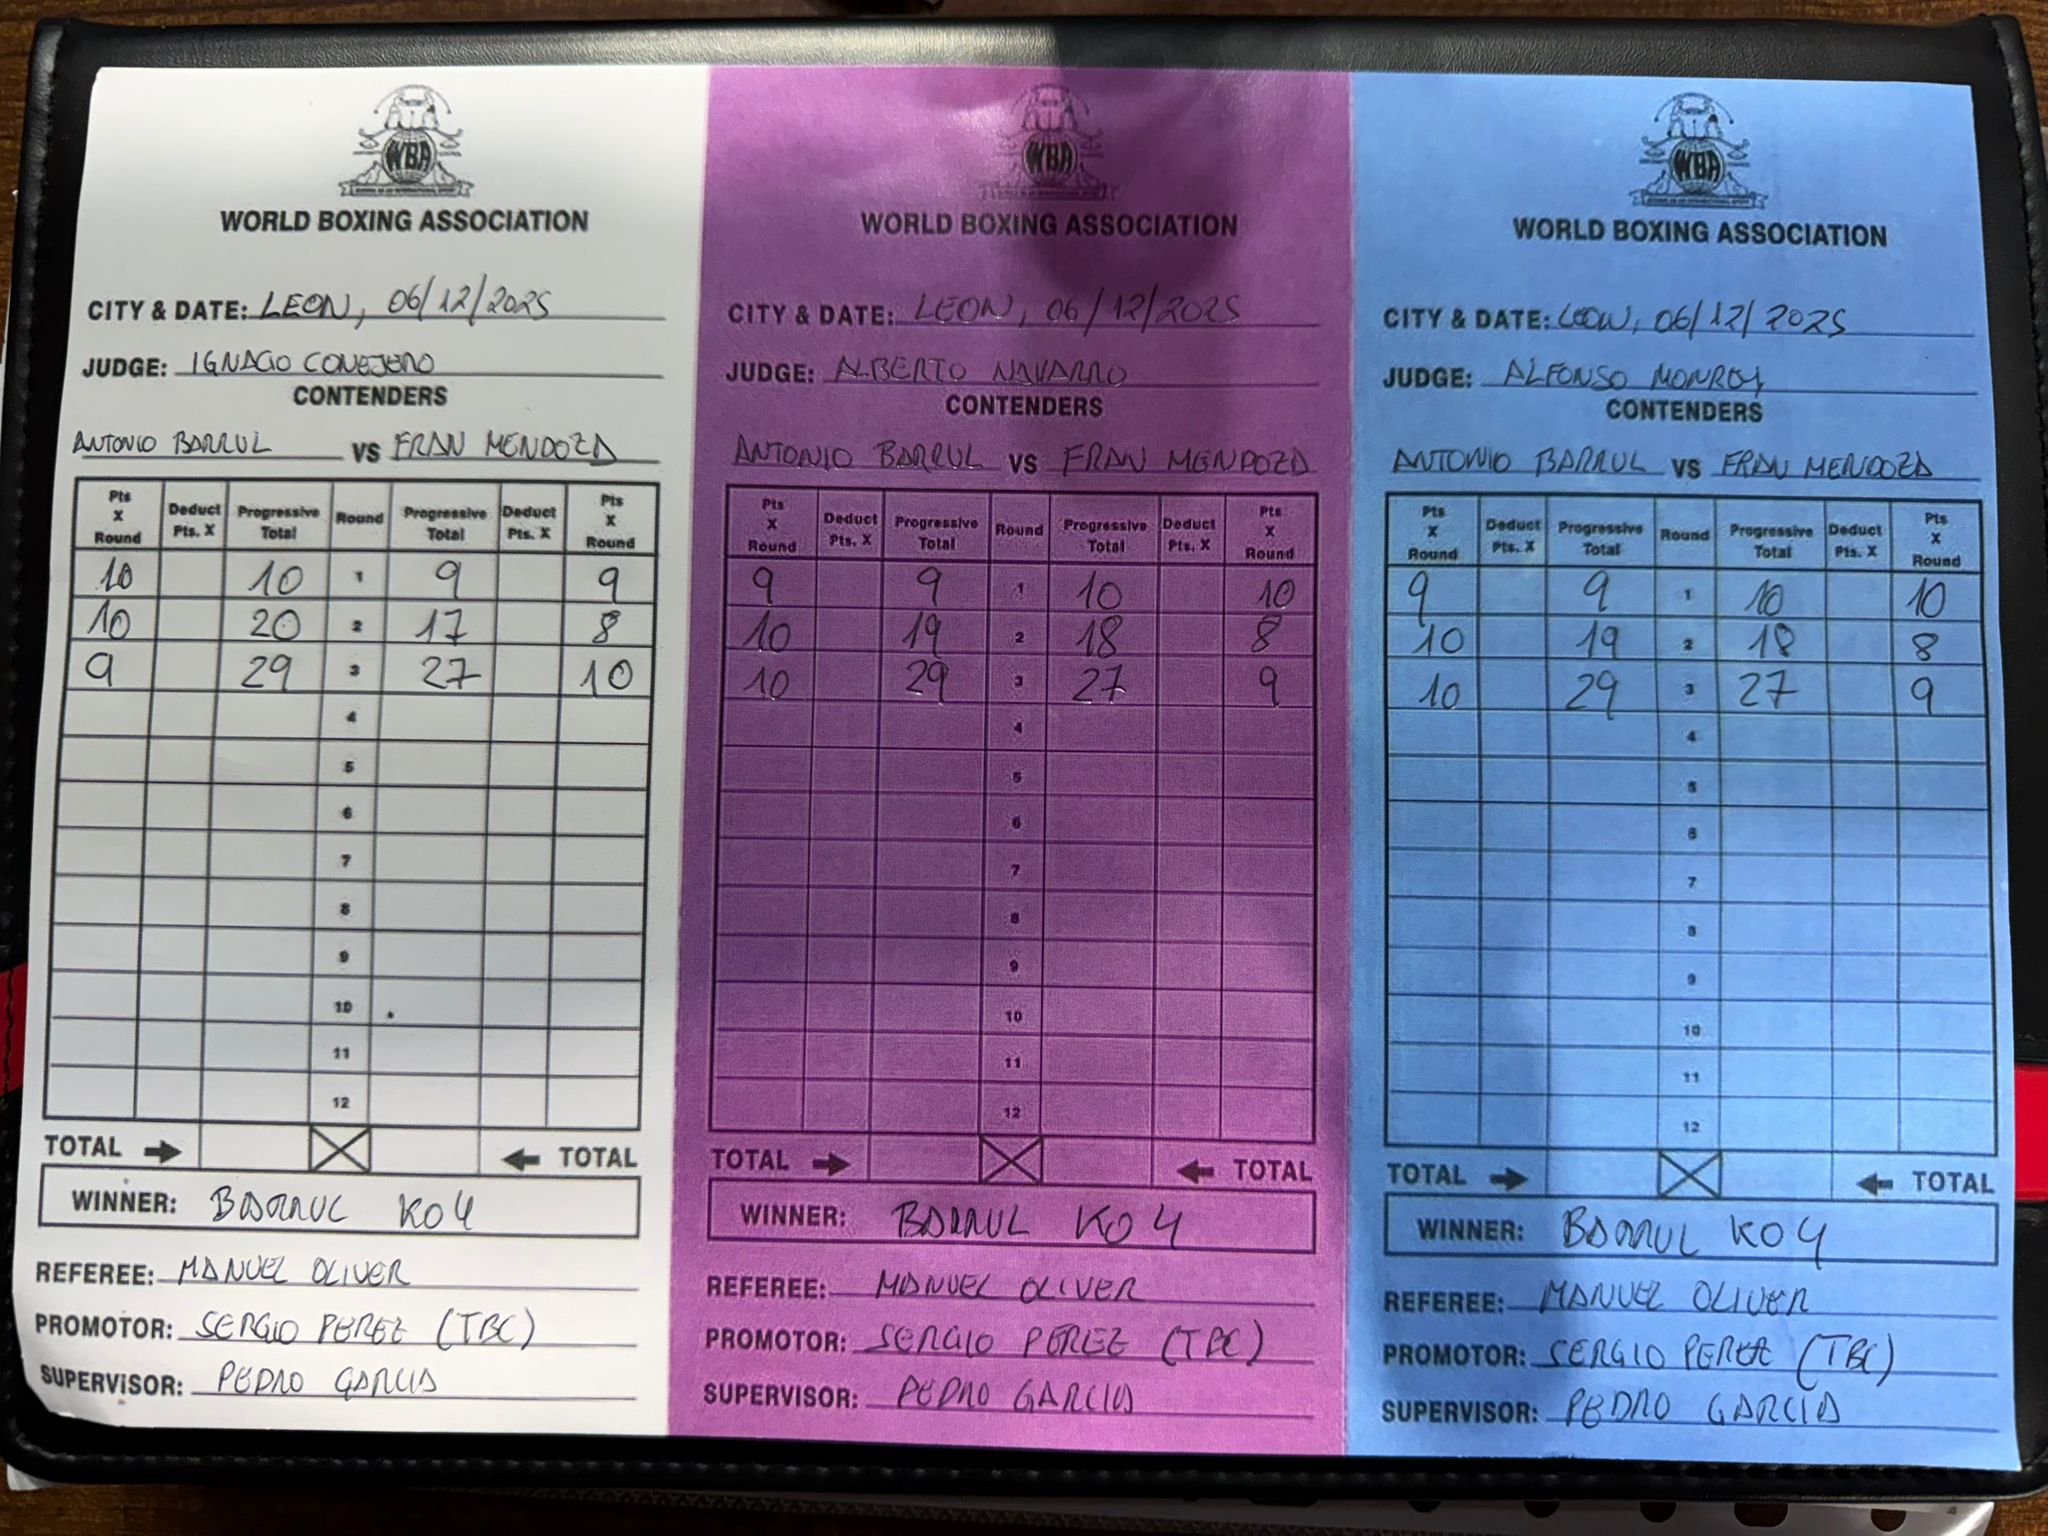 WBA
WORLD BOXING ASSOCIATION
CITY & DATE: LEON, 06/12/2025
JUDGE: IGNACIO CONEJERO
CONTENDERS
ANTONIO BARRUL VS FRAN MENDOZA
Pts X Round Deduct Pts. X Progressive Total Round Progressive Total Deduct Pts. X Pts X Round
10 10 1 9 9
10 20 2 17 8
9 29 3 27 10
4
5
6
7
8
9
10
11
12
TOTAL TOTAL
WINNER: BARRUL KO4
REFEREE: MANUEL OLIVER
PROMOTOR: SERGIO PEREZ (TBC)
SUPERVISOR: PEDRO GARCIA
WBA
WORLD BOXING ASSOCIATION
CITY & DATE: LEON, 06/12/2025
JUDGE: ALBERTO NAVARRO
CONTENDERS
ANTONIO BARRUL VS FRAN MENDOZA
Pts X Round Deduct Pts. X Progressive Total Round Progressive Total Deduct Pts. X Pts X Round
9 9 1 10 10
10 19 2 18 8
10 29 3 27 9
4
5
6
7
8
9
10
11
12
TOTAL TOTAL
WINNER: BARRUL KO4
REFEREE: MANUEL OLIVER
PROMOTOR: SERGIO PEREZ (TBC)
SUPERVISOR: PEDRO GARCIA
WBA
WORLD BOXING ASSOCIATION
CITY & DATE: LEON, 06/12/2025
JUDGE: ALFONSO MONROY
CONTENDERS
ANTONIO BARRUL VS FRAN MENDOZA
Pts X Round Deduct Pts. X Progressive Total Round Progressive Total Deduct Pts. X Pts X Round
9 9 1 10 10
10 19 2 18 8
10 29 3 27 9
4
5
6
7
8
9
10
11
12
TOTAL TOTAL
WINNER: BARRUL KO4
REFEREE: MANUEL OLIVER
PROMOTOR: SERGIO PEREZ (TBC)
SUPERVISOR: PEDRO GARCIA